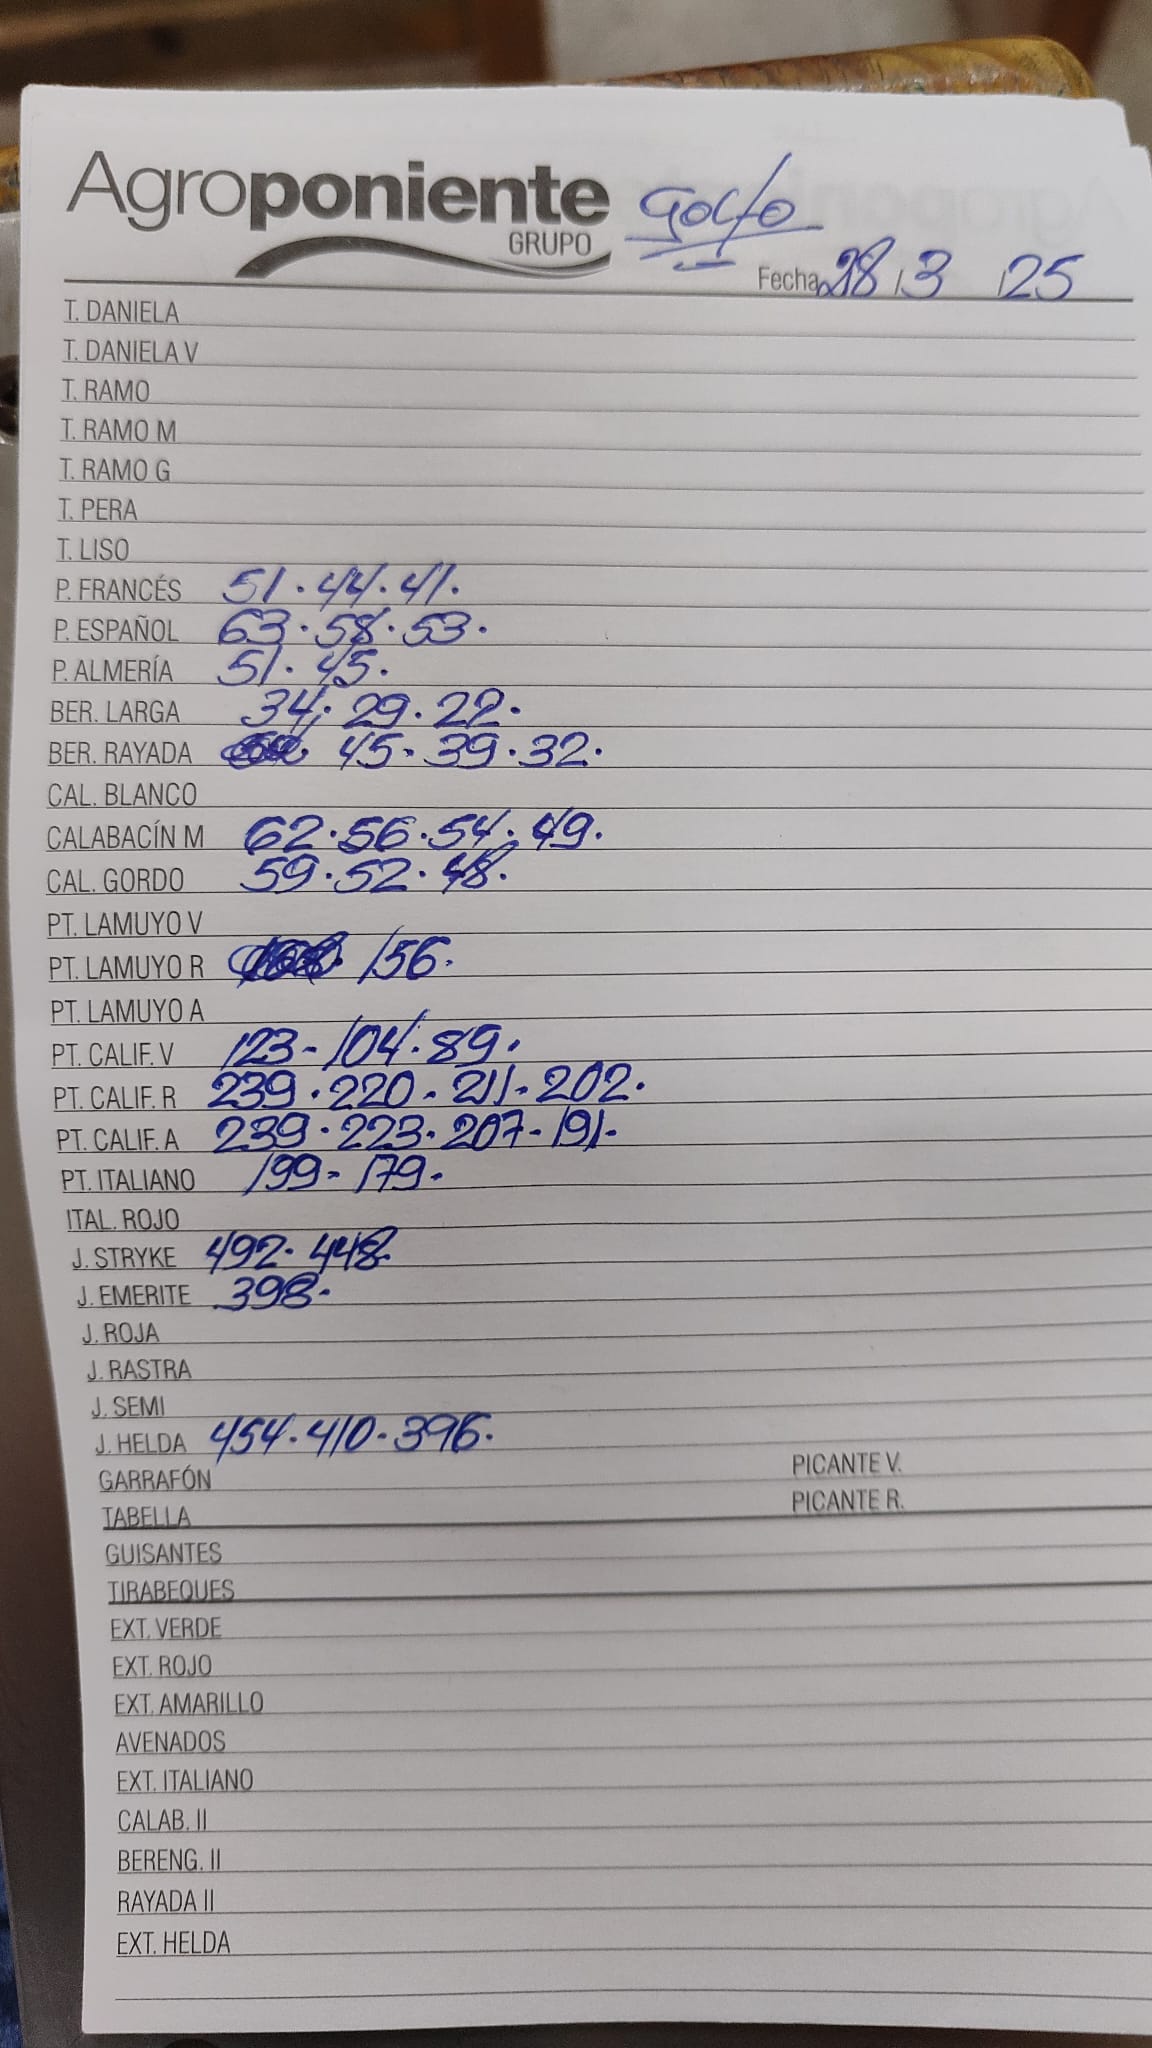 Agroponiente Golfo
GRUPO
Fecha 28/3/25
T. DANIELA
T. DANIELA V
T. RAMO
T. RAMO M
T. RAMO G
T. PERA
T. LISO
P. FRANCÉS 51. 44. 41.
P. ESPAÑOL 63. 58. 53.
P. ALMERÍA 51. 45.
BER. LARGA 34. 29. 22.
BER. RAYADA 45. 39. 32.
CAL. BLANCO
CALABACÍN M 62. 56. 54. 49.
CAL. GORDO 59. 52. 48.
PT. LAMUYO V
PT. LAMUYO R 156.
PT. LAMUYO A
PT. CALIF. V 123- 104. 89.
PT. CALIF. R 239. 220- 211- 202.
PT. CALIF. A 239. 223. 207- 191.
PT. ITALIANO 199- 179.
ITAL. ROJO
J. STRYKE 492. 448.
J. EMERITE 398.
J. ROJA
J. RASTRA
J. SEMI
J. HELDA 454. 410- 396.
GARRAFÓN PICANTE V.
TABELLA PICANTE R.
GUISANTES
TIRABEQUES
EXT. VERDE
EXT. ROJO
EXT. AMARILLO
AVENADOS
EXT. ITALIANO
CALAB. II
BERENG. II
RAYADA II
EXT. HELDA